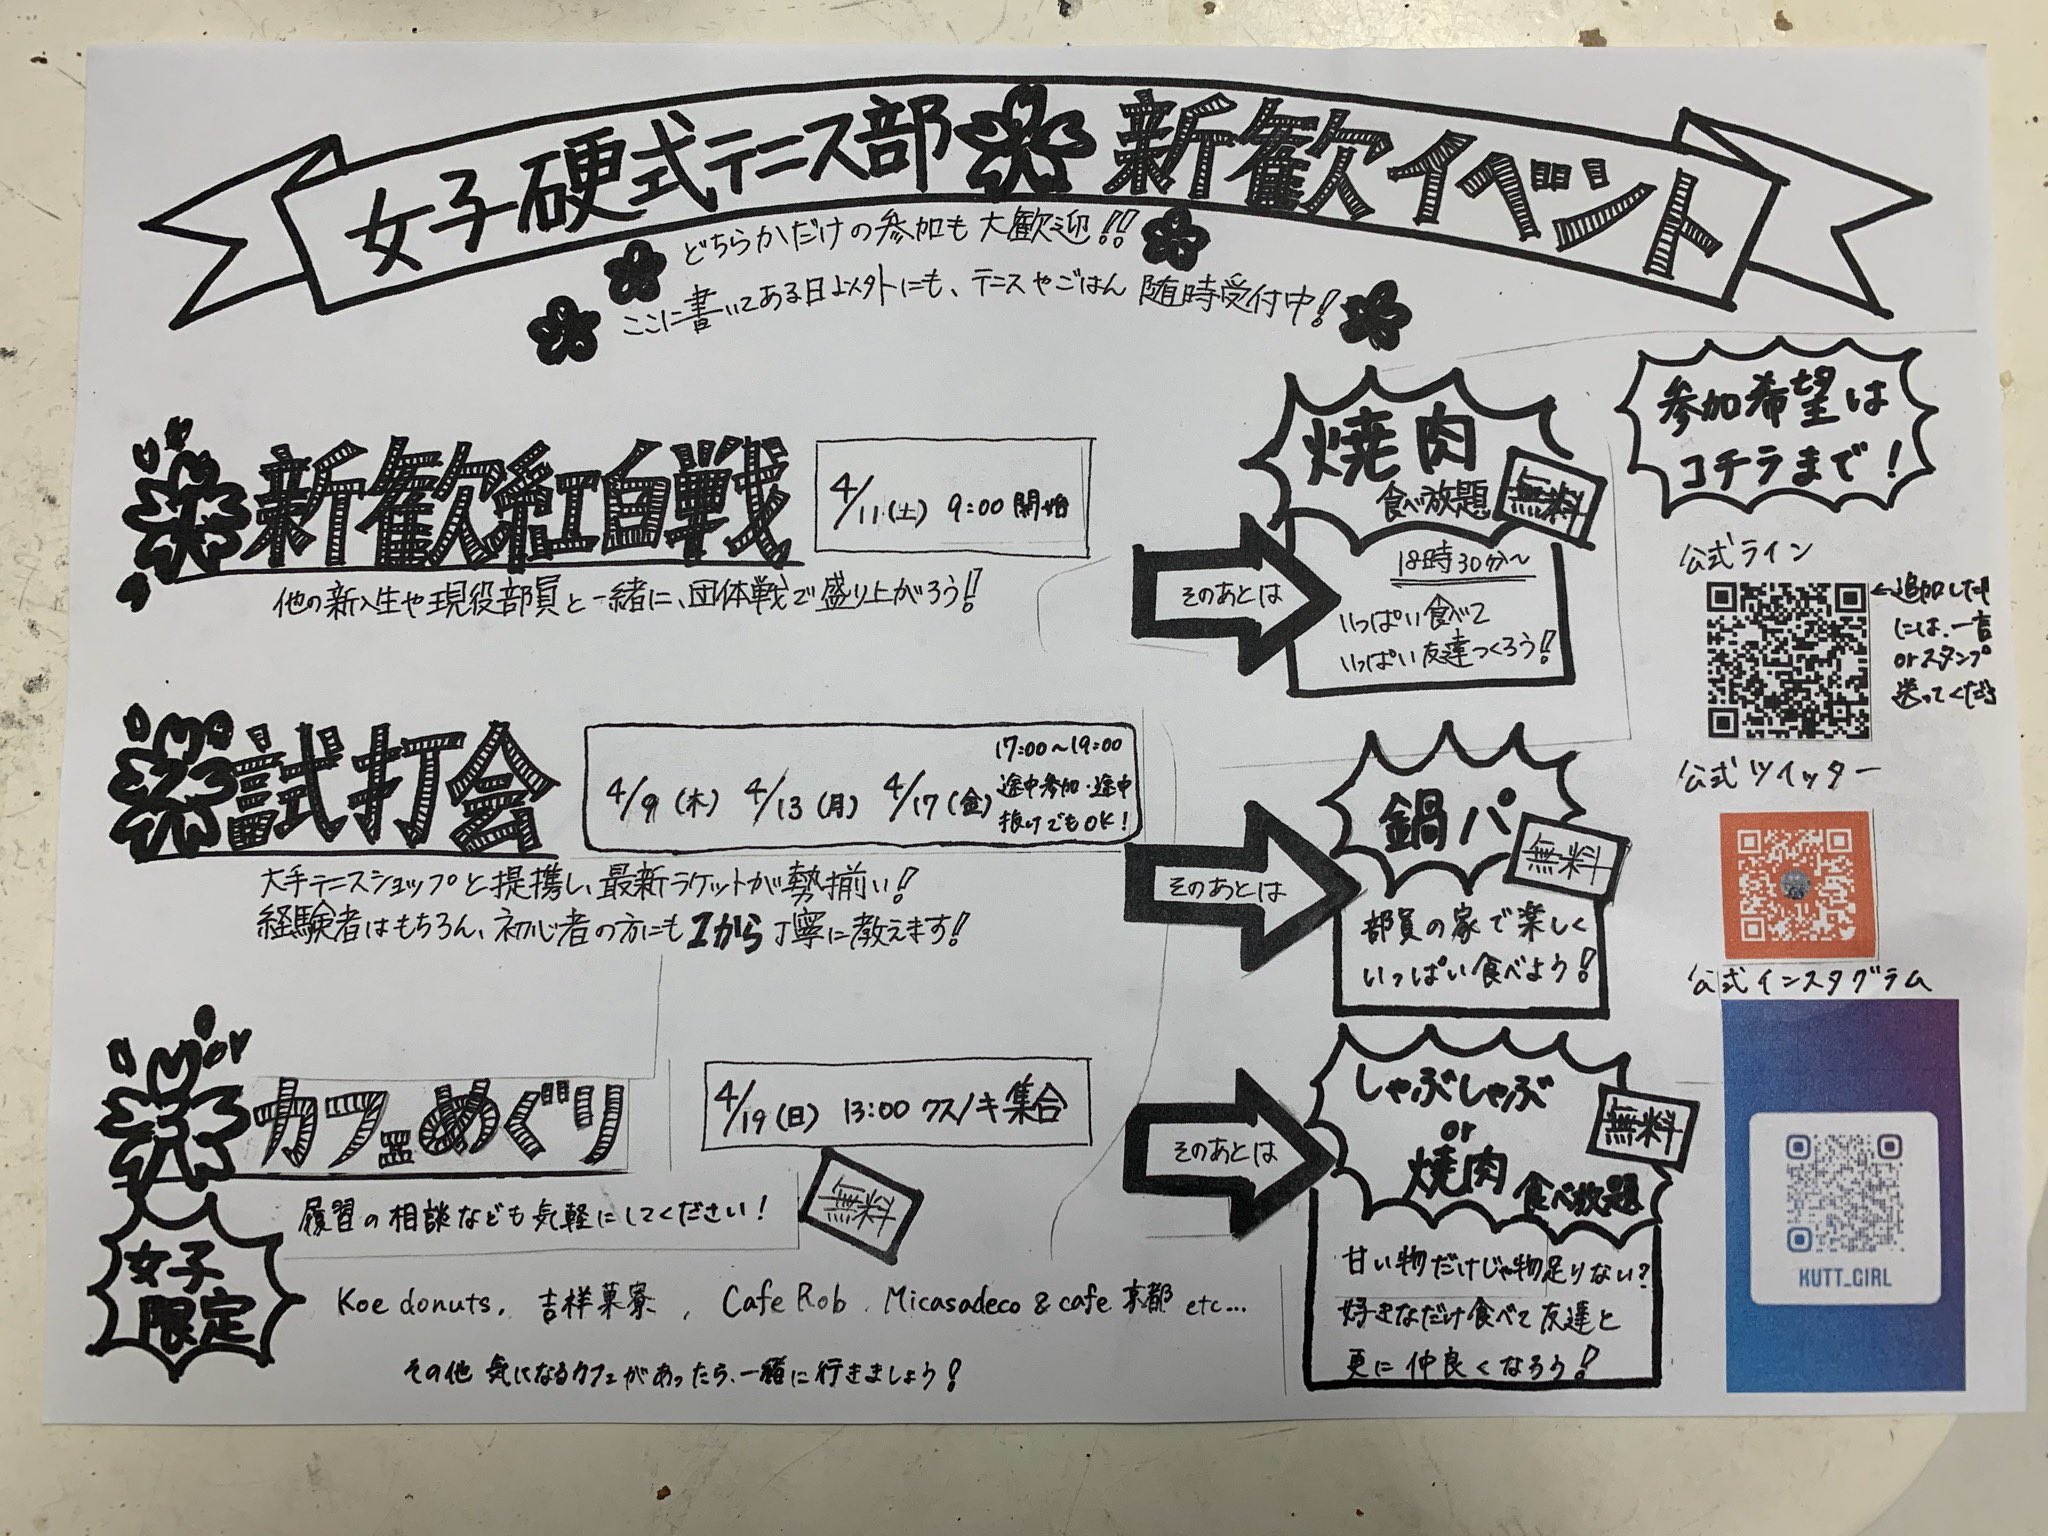 女子硬式テニス部 新歓イベント
どちらかだけの参加も大歓迎!!
ここに書いてある日以外にも、テニスやごはん随時受付中!
参加希望は
コチラまで!
新歓紅白戦
4/11(土) 9:00 開始
他の新入生や現役部員と一緒に、団体戦で盛り上がろう!!
そのあとは
焼肉
食べ放題
無料
18時30分~
いっぱい食べて
いっぱい友達つくろう!!
公式ライン
←追加した時
には、一言
orスタンプ
送ってくださ
試打会
4/9(木) 4/13(月) 4/17(金)
17:00~19:00
途中参加・途中
抜けでもOK!
大手テニスショップと提携し、最新ラケットが勢揃い!
経験者はもちろん、初心者の方にも1から丁寧に教えます!
そのあとは
鍋パ
無料
部員の家で楽しく
いっぱい食べよう!
公式ツイッター
公式インスタグラム
KUTT_GIRL
or
カフェめぐり
4/19(日) 13:00 クスノキ集合
無料
女子
限定
履習の相談なども気軽にしてください!
Koe donuts, 吉祥菓寮, Cafe Rob, Micasadeco & cafe 京都 etc...
その他 気になるカフェがあったら、一緒に行きましょう!
そのあとは
しゃぶしゃぶ
or
焼肉 食べ放題
無料
甘い物だけじゃ物足りない?
好きなだけ食べて友達と
更に仲良くなろう!